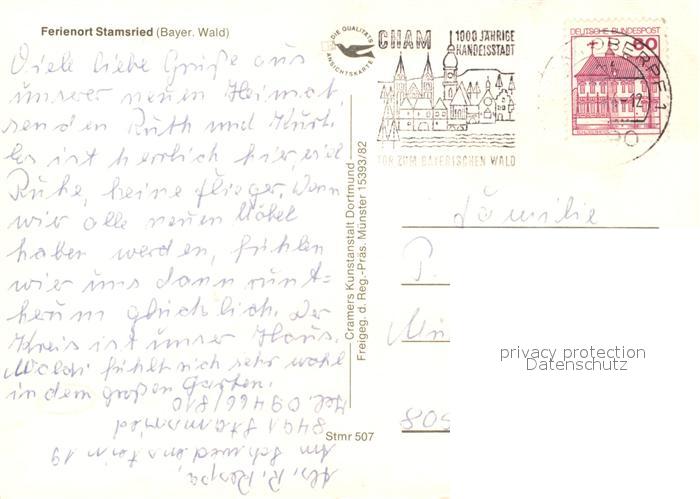 Ferienort Stamsried (Bayer. Wald)
Viele liebe Grüße aus
unserer neuen Heimat,
senden Ruth und Kurt.
Es ist herrlich hier, viel
Ruhe, keine Flieger. Wenn
wir alle neuen Möbel
haben werden, fühlen
wir uns dann rund-
herum glücklich. Der
Kreis ist unser Haus.
Waldi fühlt sich sehr wohl
in dem großen Garten.
Tel. 09466/810
8491 Stamsried
Am 19
Abs. R.
Stmr 507
Cramers Kunstanstalt Dortmund
Freigeg. d. Reg.-Präs. Münster 15393/82
DIE QUALITÄTS
ANSICHTSKARTE
CHAM
1000 JÄHRIGE
HANDELSSTADT
TOR ZUM BAYERISCHEN WALD
DEUTSCHE BUNDESPOST
60
Familie
805
privacy protection
Datenschutz